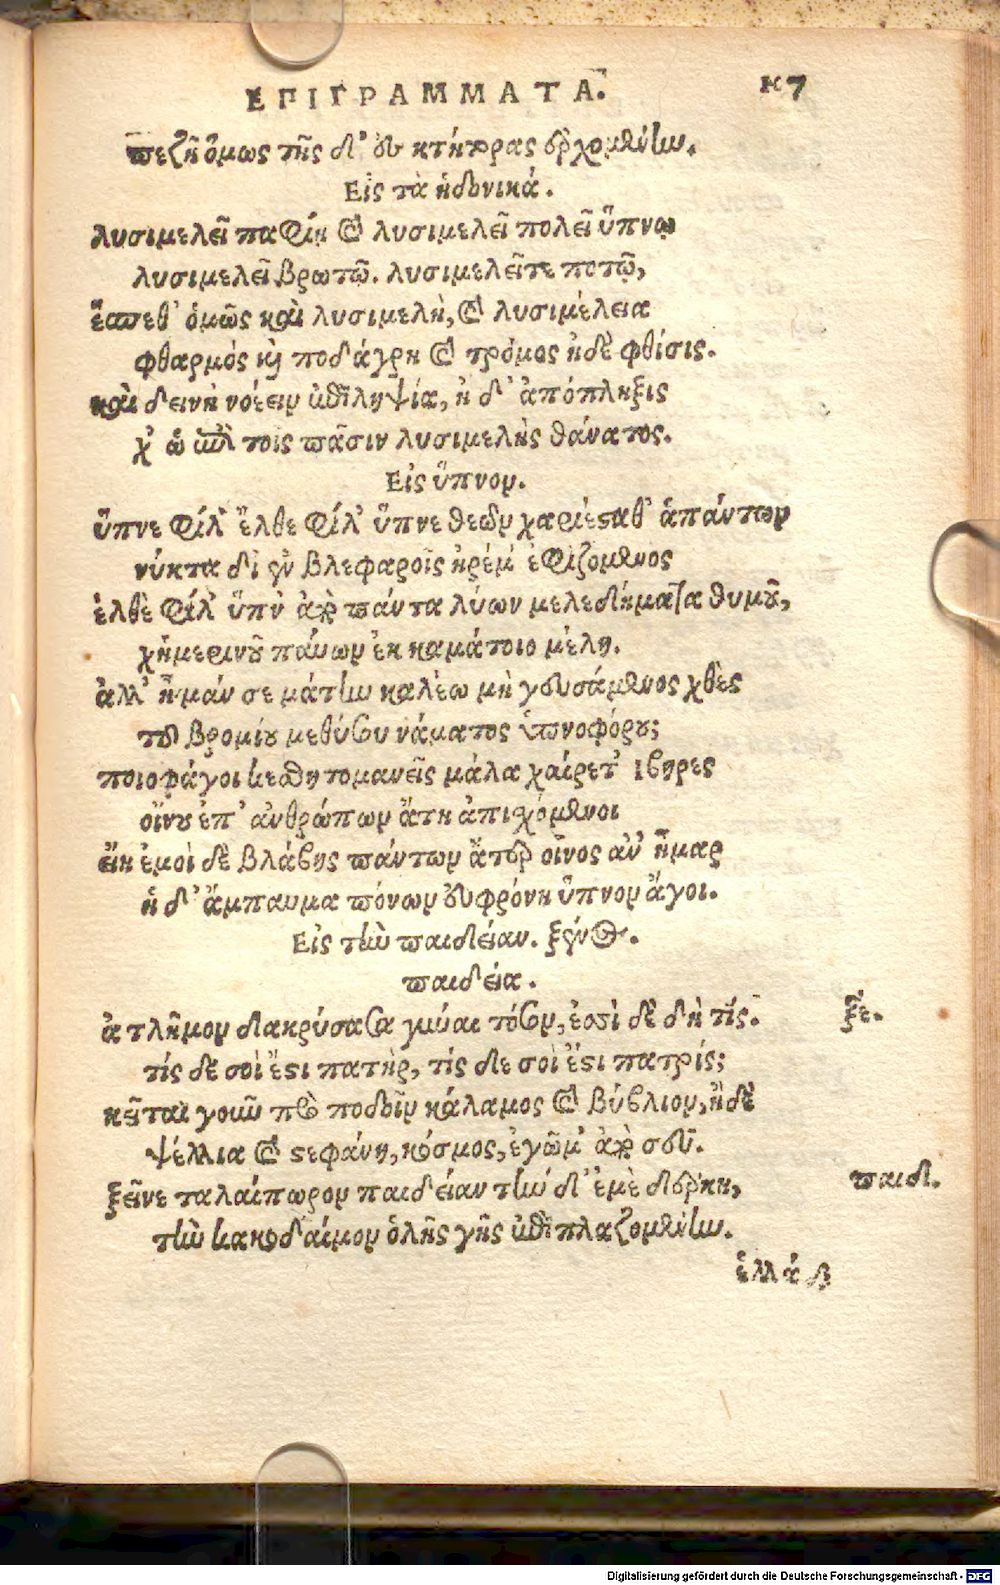 ΕΠΙΓΡΑΜΜΑΤΑ. 27
πεζῇ ὅμως τῆς δι' οὗ κτήτορας ἐρχομένην.
Εἰς τὰ ἡδονικά.
λυσιμελεῖ παφίῃ καὶ λυσιμελεῖ πολεῖ ὕπνῳ
λυσιμελεῖ βρωτῷ. λυσιμελεῖτε ποτῷ,
ἕσπεθ' ὁμῶς καὶ λυσιμελὴ, καὶ λυσιμέλεια
φθαρμός καὶ ποδάγρη καὶ τρόμος ἠδὲ φθίσις.
καὶ δεινὴ νόσειν ἐπιληψία, ἡ δ' ἀπόπληξις
χ' ὡ ἐπὶ τοῖς πᾶσιν λυσιμελὴς θάνατος.
Εἰς ὕπνον.
ὕπνε φίλ' ἔλθε φίλ' ὕπνε θεῶν χαριέσταθ' ἁπάντων
νύκτα δι' ἐν βλεφαροῖς ἠρέμ' ἐφιζόμενος
ἐλθὲ φίλ' ὕπν' ἄρ πάντα λύων μελεδήματα θυμοῦ,
χἠμερινοῦ παύων ἐκ καμάτοιο μέλη.
ἀλλ' ἦ μάν σε μάτην καλέω μὴ γευσάμενος χθὲς
τοῦ βρομίου μεθύσου νάματος ὑπνοφόρου;
ποιοφάγοι μεθητομανεῖς μάλα χαίρετ' ιβηρες
οἴνου ἐπ' ἀνθρώπων ἄτῃ ἀπιχόμενοι
εἴη ἐμοὶ δὲ βλάβης πάντων ἄτερ οἶνος ἀν' ἦμαρ
ἡ δ' ἄμπαυμα πόνων εὐφρόνη ὕπνον ἄγοι.
Εἰς τὴν παιδείαν. ξένος.
παιδεία.
ἀ τλῆμον διακρύσασα γύναι τόσον, ἐσσὶ δὲ δὴ τίς. ξε.
τίς δὲ σοὶ ἔστι πατὴρ, τίς δε σοὶ ἔστι πατρίς;
κεῖται γοῦν πρὸ ποδοῖν κάλαμος καὶ βύβλιον, ἠδὲ
ψέλλια καὶ στεφάνη, κόσμος, ἐγᾦμ' ἄρ σεῦ.
ξεῖνε ταλαίπωρον παιδείαν τὴν δ' ἐμὲ δέρκῃ, παιδ.
τὴν κακοδαίμον ὁλῆς γῆς ἐπιπλαζομένην.
ἑλλάδ
Digitalisierung gefördert durch die Deutsche Forschungsgemeinschaft - DFG